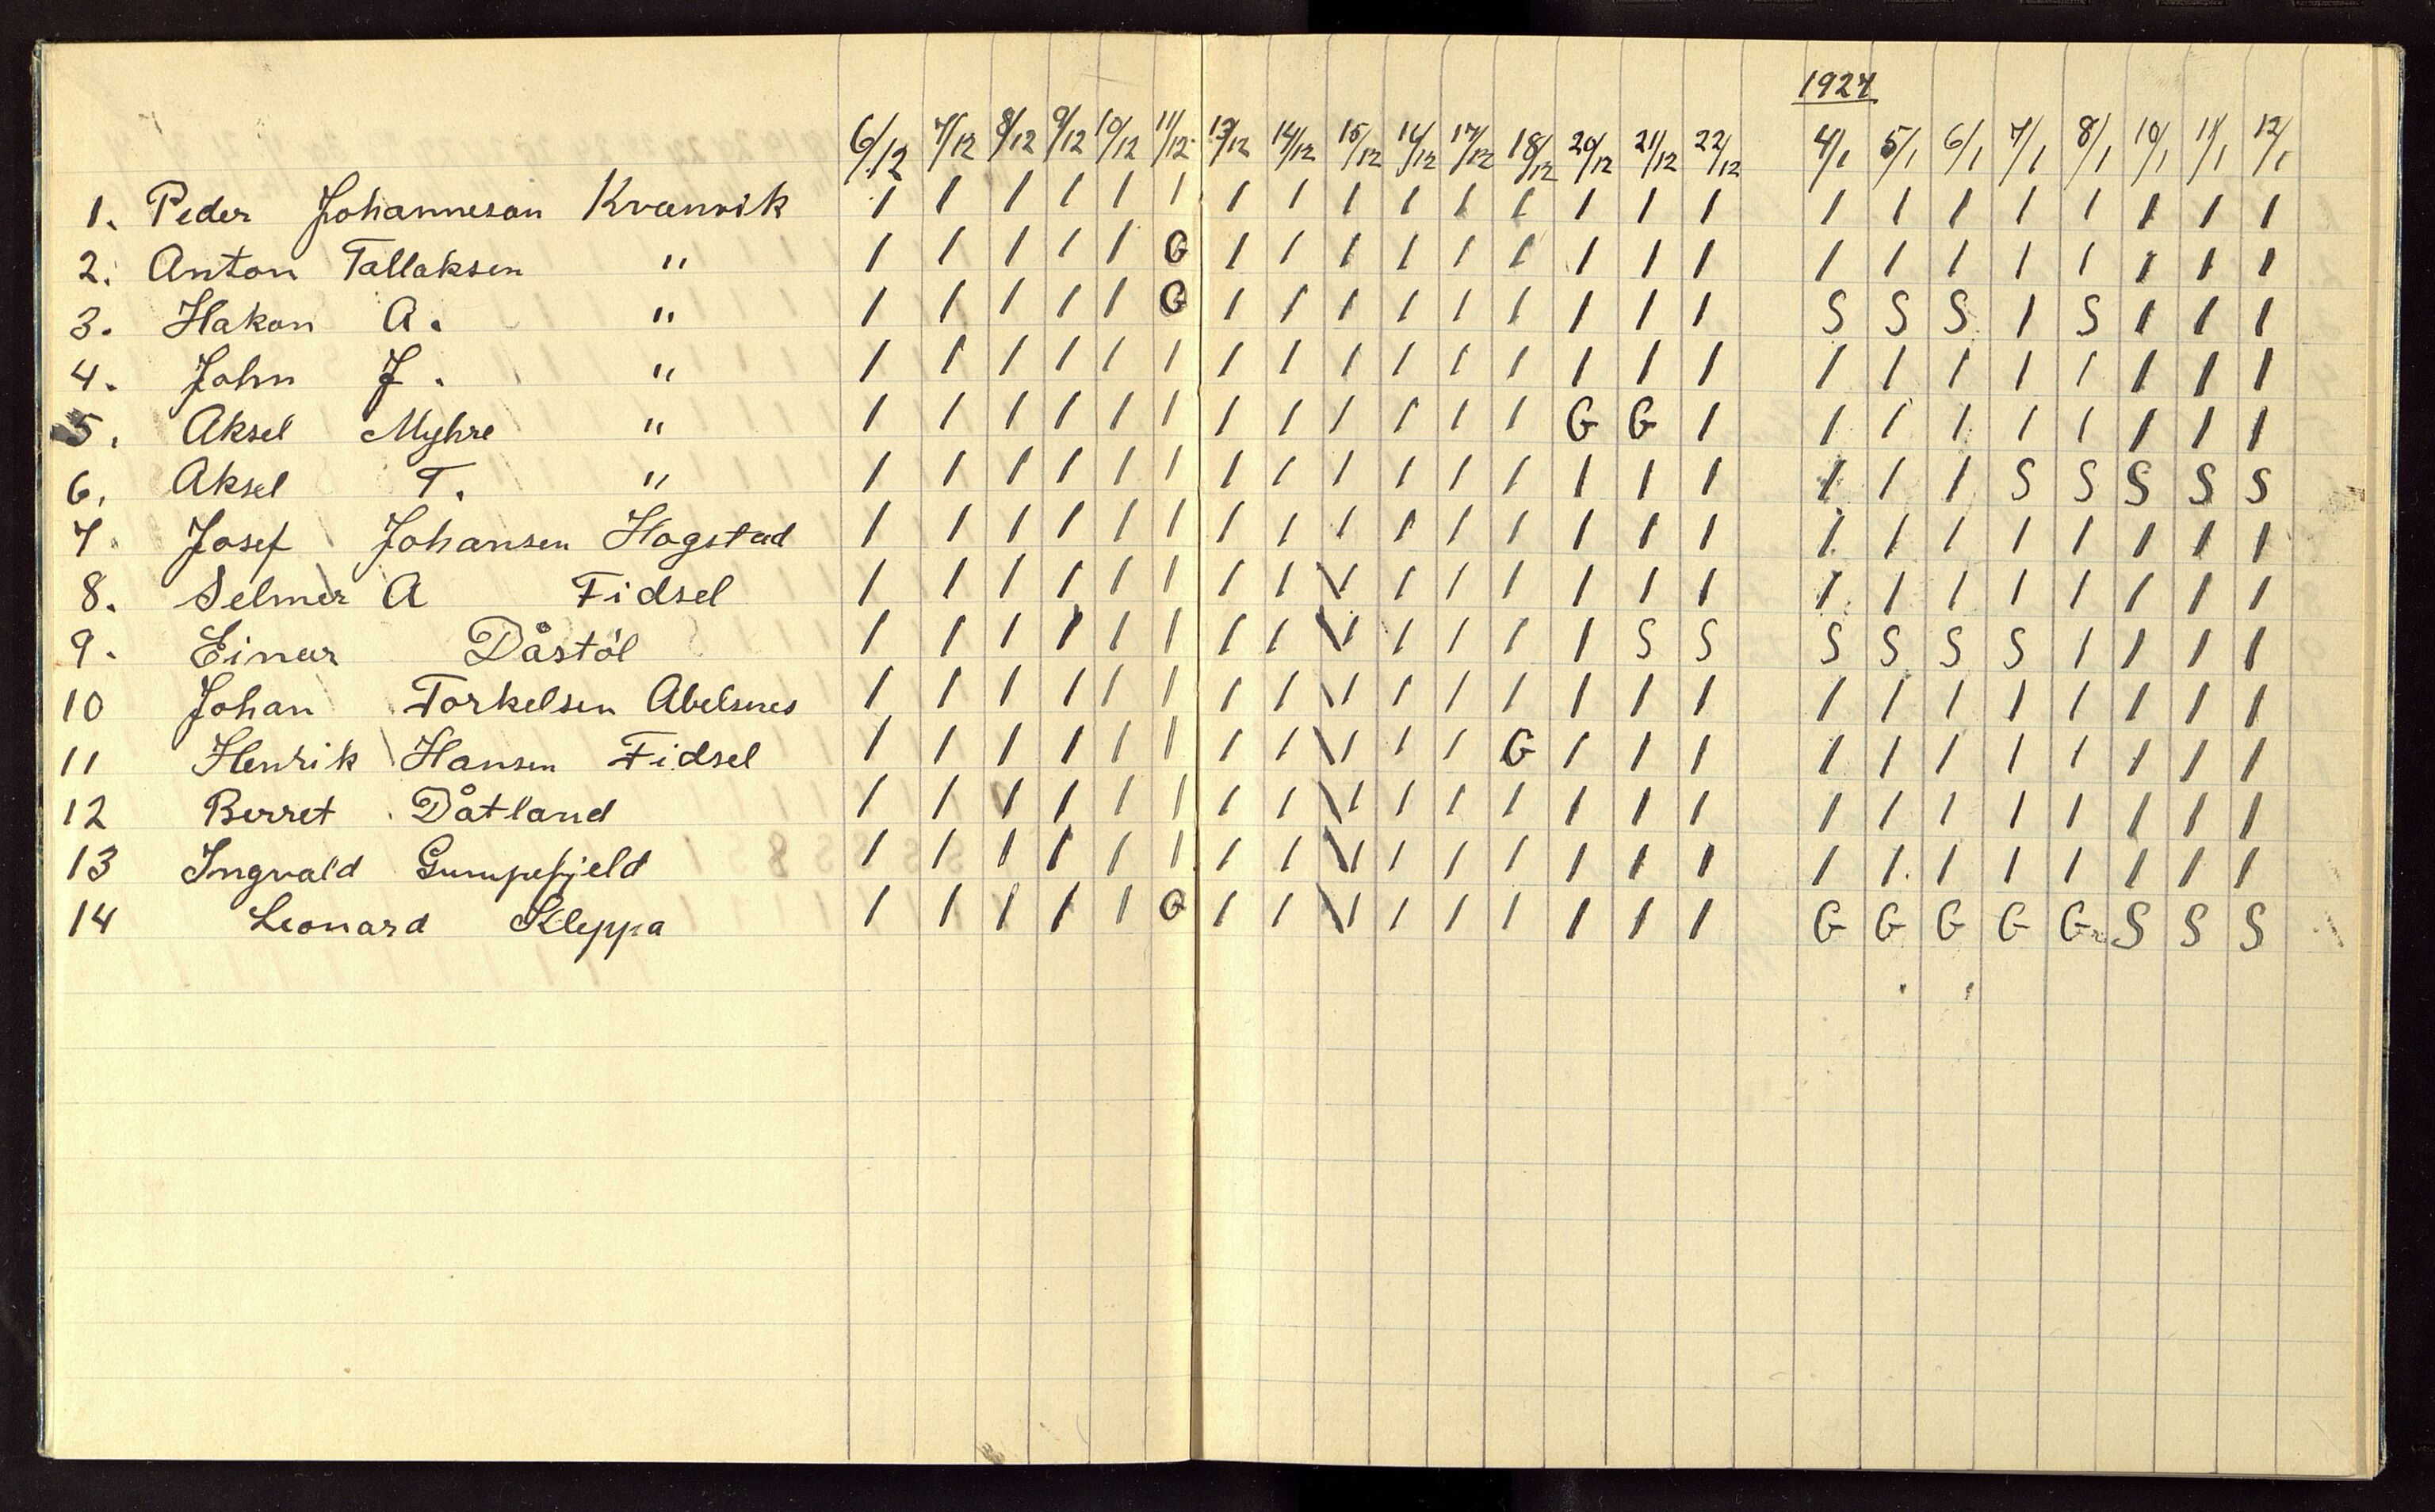 1927
6/12 7/12 8/12 9/12 10/12 11/12 13/12 14/12 15/12 16/12 17/12 18/12 20/12 21/12 22/12 4/1 5/1 6/1 7/1 8/1 10/1 11/1 12/1
1. Peder Johanneson Kvanvik / / / / / / / / / / / / / / / / / / / / / / /
2. Anton Tallaksen " / / / / / G / / / / / / / / / / / / / / / / /
3. Hakon A. " / / / / / G / / / / / / / / / S S S / S / / /
4. John J. " / / / / / / / / / / / / / / / / / / / / / / /
5. Aksel Myhre " / / / / / / / / / / / / G G / / / / / / / / /
6. Aksel T. " / / / / / / / / / / / / / / / / / / S S S S S
7. Josef Johansen Hogstad / / / / / / / / / / / / / / / / / / / / / / /
8. Selmer A Fidsel / / / / / / / / \/ / / / / / / / / / / / / / /
9. Einar Dåstöl / / / / / / / / \/ / / / / S S S S S S / / / /
10 Johan Torkelsen Abelsnes / / / / / / / / \/ / / / / / / / / / / / / / /
11 Henrik Hansen Fidsel / / / / / / / / \/ / / G / / / / / / / / / / /
12 Berret Dåtland / / / / / / / / \/ / / / / / / / / / / / / / /
13 Ingvald Gumpefjeld / / / / / / / / \/ / / / / / / / / / / / / / /
14 Leonard Kleppa / / / / / G / / \/ / / / / / / G G G G G S S S